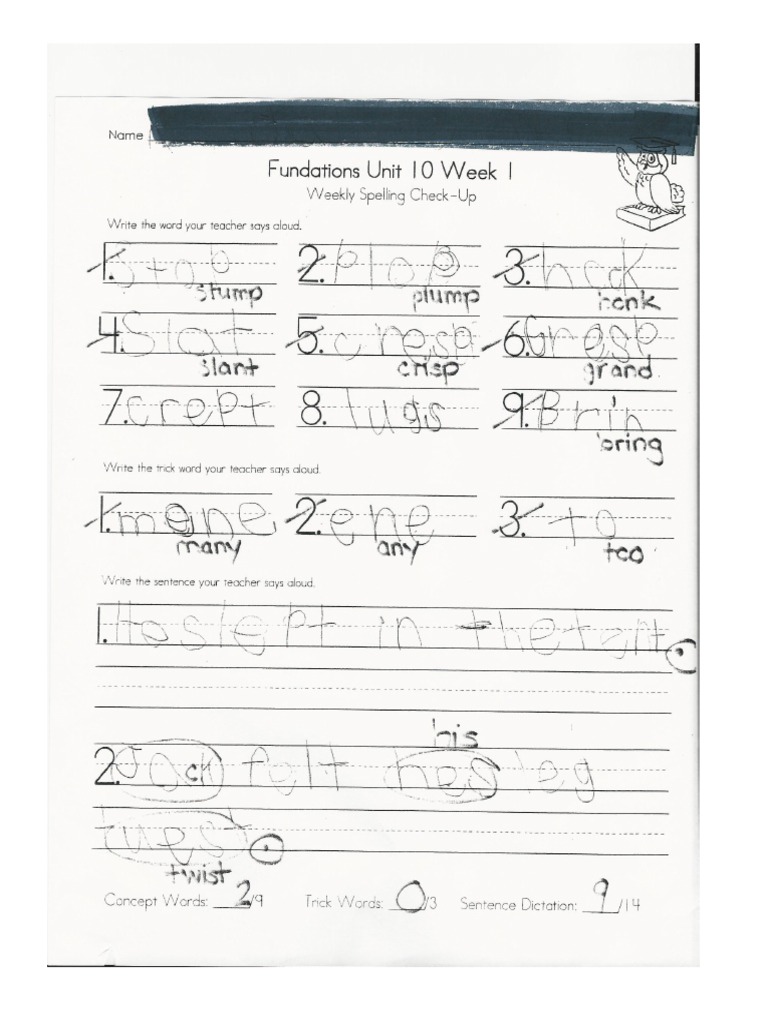 Name
Fundations Unit 10 Week 1
Weekly Spelling Check-Up
Write the word your teacher says aloud.
1. Stop 2. Plop 3. hock
stump plump honk
4. Slat 5. cresp 6. Gresp
slant crisp grand
7. crept 8. lugs 9. Brin
bring
Write the trick word your teacher says aloud.
1. mone 2. ene 3. to
many any too
Write the sentence your teacher says aloud.
1. He slept in the tent.
his
2. Jack felt hes leg
tuest.
twist
Concept Words: 2/9 Trick Words: 0/3 Sentence Dictation: 9/14